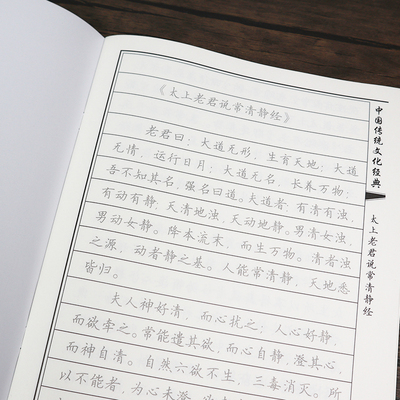 《太上老君说常清静经》
老君曰：大道无形，生育天地；大道
无情，运行日月；大道无名，长养万物；
吾不知其名，强名曰道。大道者：有清有浊，
有动有静，天清地浊，天动地静。男清女浊，
男动女静。降本流末，而生万物。清者浊
之源，动者静之基。人能常清静，天地悉
皆归。
夫人神好清，而心扰之；人心好静，
而欲牵之。常能遣其欲，而心自静，澄其心，
而神自清。自然六欲不生，三毒消灭。所
以不能者，为心未澄
中国传统文化经典
太上老君说常清静经